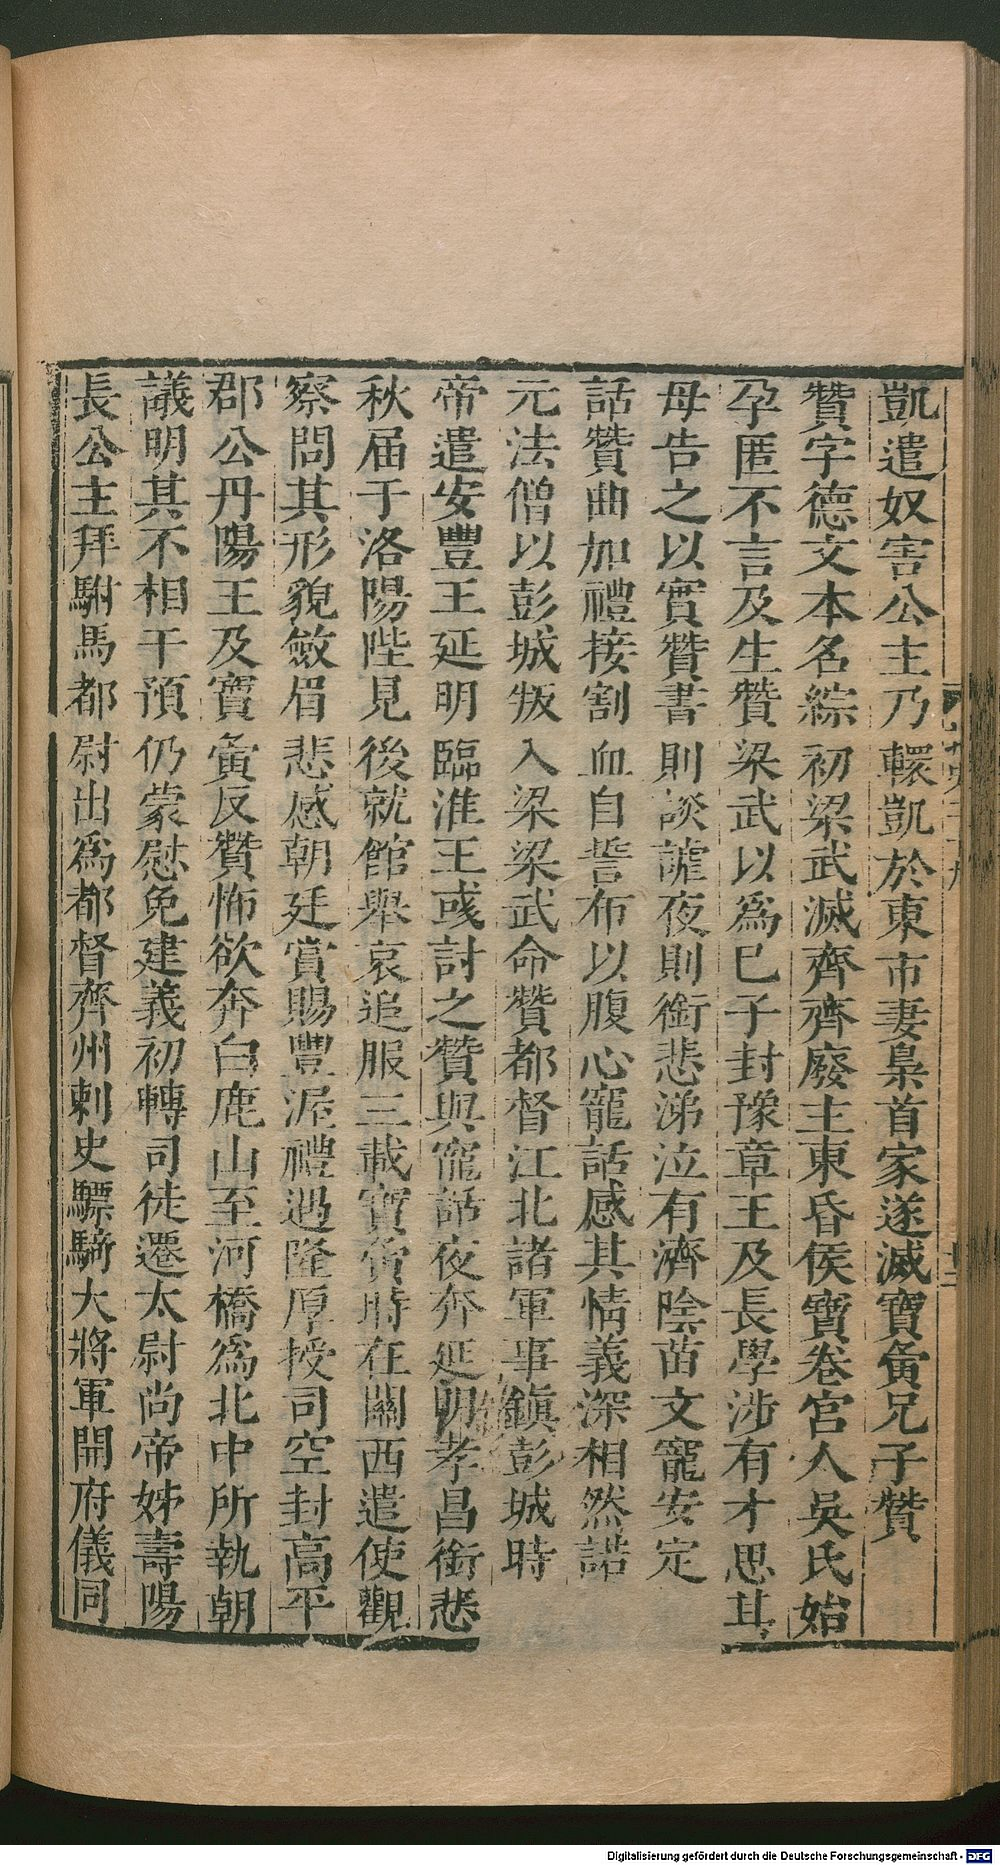 凱遣奴害公主乃轘凱於東市妻梟首家遂滅寶夤兄子贊
贊字德文本名綜初梁武滅齊齊廢主東昏侯寶卷宮人吳氏始
孕匿不言及生贊梁武以爲已子封豫章王及長學涉有才思其
母告之以實贊書則談謔夜則銜悲涕泣有濟陰苗文寵安定
話贊曲加禮接割血自誓布以腹心寵話感其情義深相然諾
元法僧以彭城叛入梁梁武命贊都督江北諸軍事鎭彭城時
帝遣安豐王延明臨淮王彧討之贊與寵話夜奔延明孝昌銜悲
秋届于洛陽陛見後就館舉哀追服三載寶夤時在關西遣使觀
察問其形貌斂眉悲感朝廷賞賜豐渥禮遇隆厚授司空封高平
郡公丹陽王及寶夤反贊怖欲奔白鹿山至河橋爲北中所執朝
議明其不相干預仍蒙慰免建義初轉司徒遷太尉尚帝姊壽陽
長公主拜駙馬都尉出爲都督齊州刺史驃騎大將軍開府儀同
Digitalisierung gefördert durch die Deutsche Forschungsgemeinschaft - DFG